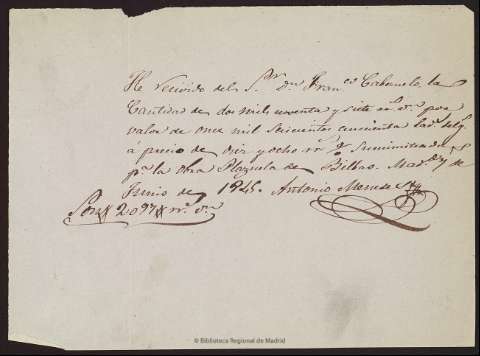 He recivido del Sr. dn. Franco Cabuelo la
Cantidad de dos mil noventa y siete rs. vn. por
valor de once mil seicientos cincuenta
á precio de diez y ocho rs. suministrada
pa. la obra Plazuela de Bilbao. Madrid y de
Junio de 1845. Antonio
Son# 2097# rs. vn.
© Biblioteca Regional de Madrid